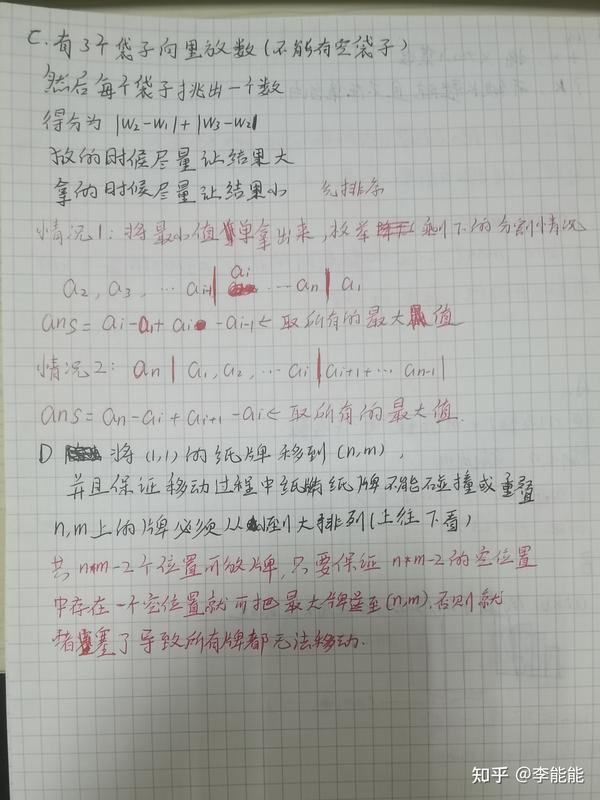 C. 有3个袋子向里放数(不能有空袋子)
然后每个袋子挑出一个数
得分为 |w₂-w₁| + |w₃-w₂|
放的时候尽量让结果大
拿的时候尽量让结果小 先排序
情况1: 将最小值单拿出来, 枚举剩下的分割情况
a₂, a₃, … aᵢ₋₁ | aᵢ … aₙ | a₁
ans = aᵢ - a₁ + aᵢ - aᵢ₋₁ ← 取所有的最大值
情况2: aₙ | a₁, a₂, … aᵢ | aᵢ₊₁ + … aₙ₋₁ |
ans = aₙ - aᵢ + aᵢ₊₁ - aᵢ ← 取所有的最大值.
D 将 (1,1) 的纸牌移到 (n,m),
并且保证移动过程中纸牌不能碰撞或重叠
n,m 上的牌必须从到大排列(上往下看)
共 n*m-2个位置可放牌, 只要保证 n*m-2的空位置
中存在一个空位置就可把最大牌至(n,m). 否则就
堵塞了导致所有牌都无法移动.
知乎 @李能能